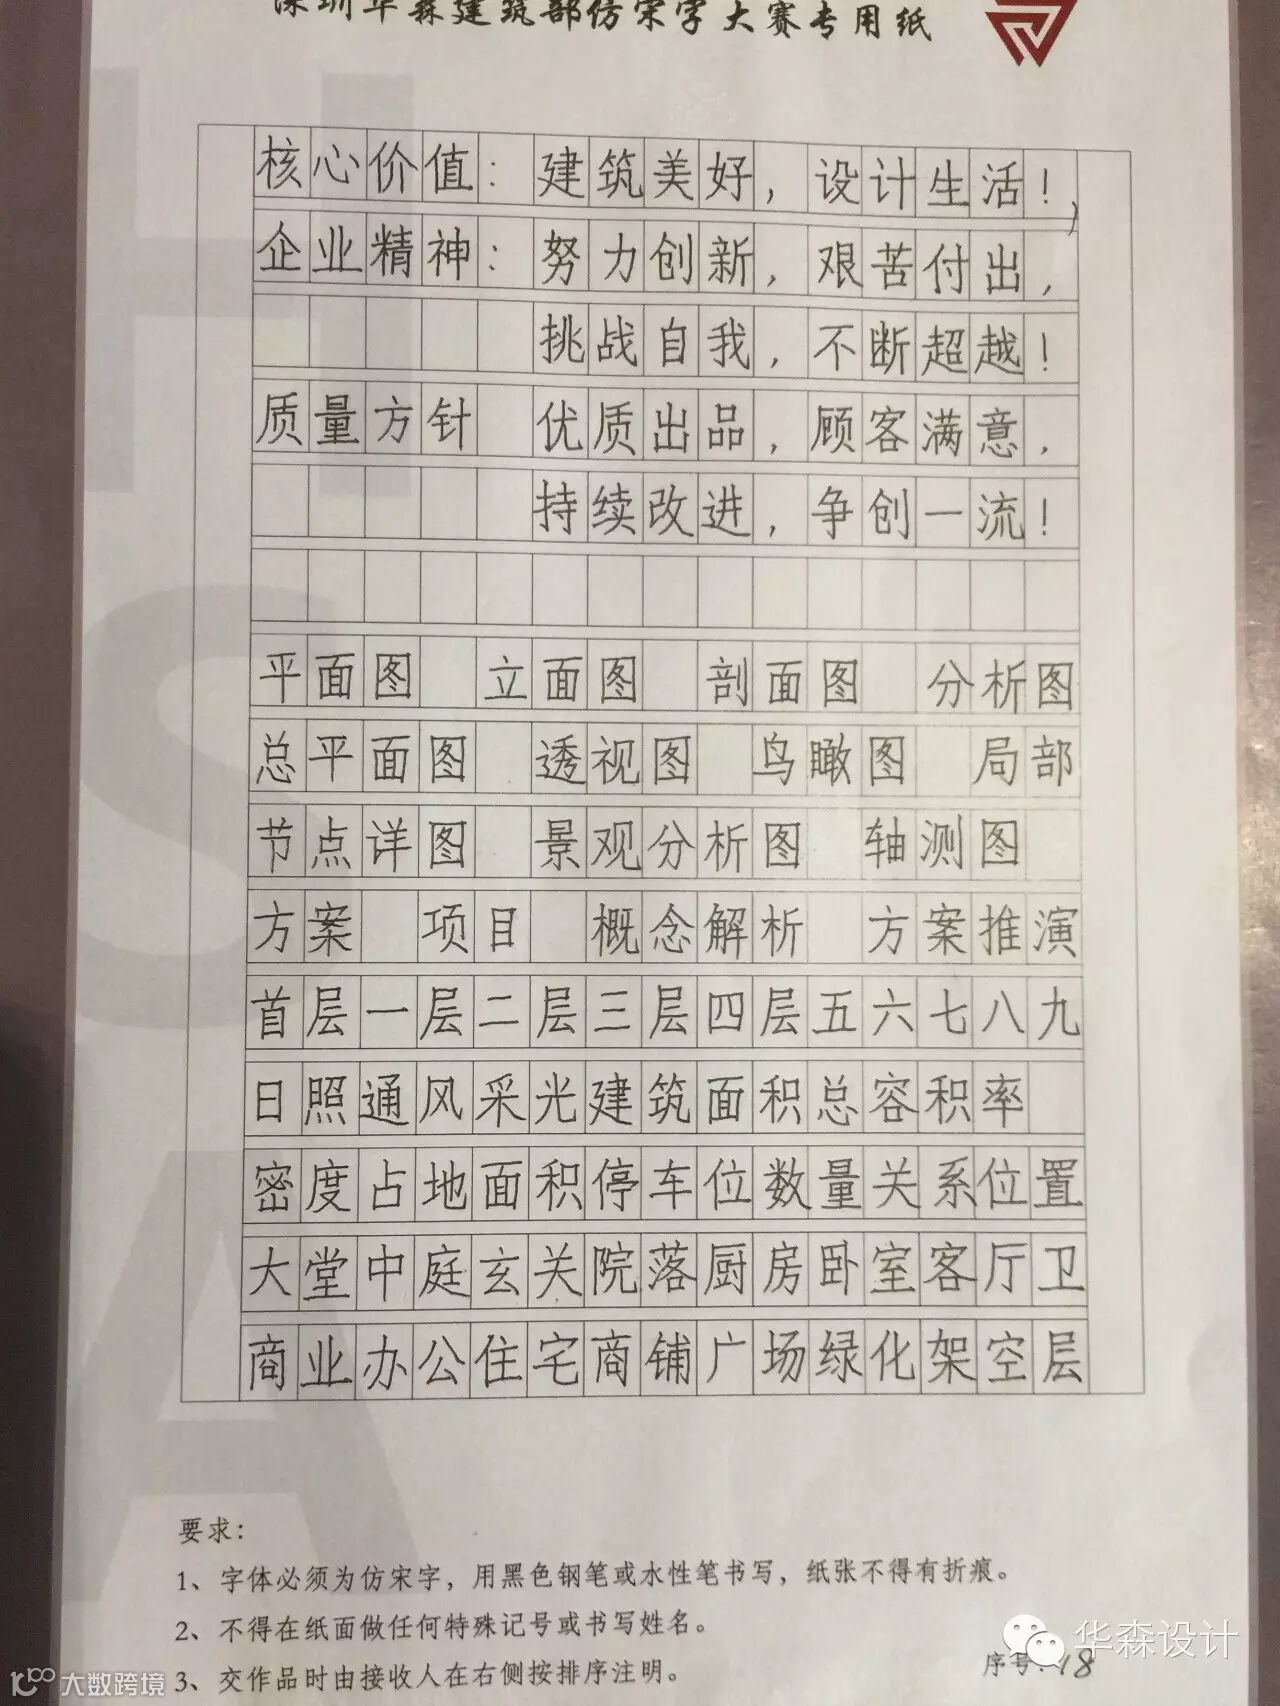 深圳华森建筑部仿宋字大赛专用纸
核心价值：建筑美好，设计生活！
企业精神：努力创新，艰苦付出，
挑战自我，不断超越！
质量方针 优质出品，顾客满意，
持续改进，争创一流！
平面图 立面图 剖面图 分析图
总平面图 透视图 鸟瞰图 局部
节点详图 景观分析图 轴测图
方案 项目 概念解析 方案推演
首层一层二层三层四层五六七八九
日照通风采光建筑面积总容积率
密度占地面积停车位数量关系位置
大堂中庭玄关院落厨房卧室客厅卫
商业办公住宅商铺广场绿化架空层
要求：
1、字体必须为仿宋字，用黑色钢笔或水性笔书写，纸张不得有折痕。
2、不得在纸面做任何特殊记号或书写姓名。
3、交作品时由接收人在右侧按排序注明。
序号：18
华森设计
大数跨境
HSA